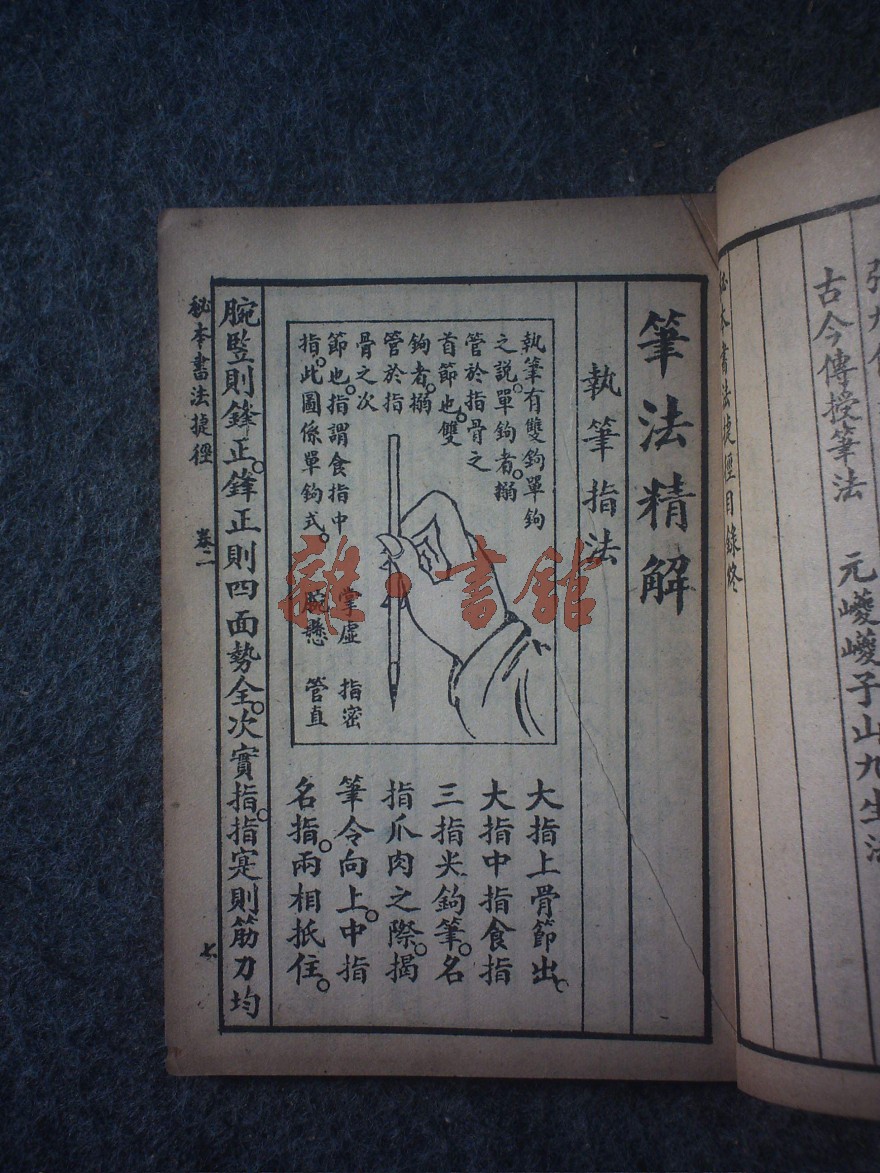 古今傳授筆法 元巙巙子山九生法
秘本書法捷徑目錄終
筆法精解
執筆指法
執筆有雙鉤單鉤
之説。單鉤者。搦
管於指骨之
首節也。雙
鉤者。搦
管於指
骨之次
節也。指謂食指中
指。此圖係單鉤式。
掌虛 指密
腕懸 管直
大指上骨節出。
大指中指食指
三指尖鉤筆。名
指爪肉之際。揭
筆令向上。中指
名指。兩相抵住。
腕竪則鋒正。鋒正則四面勢全。次實指。指寔則筋力均
秘本書法捷徑 卷二 七
雜·書館